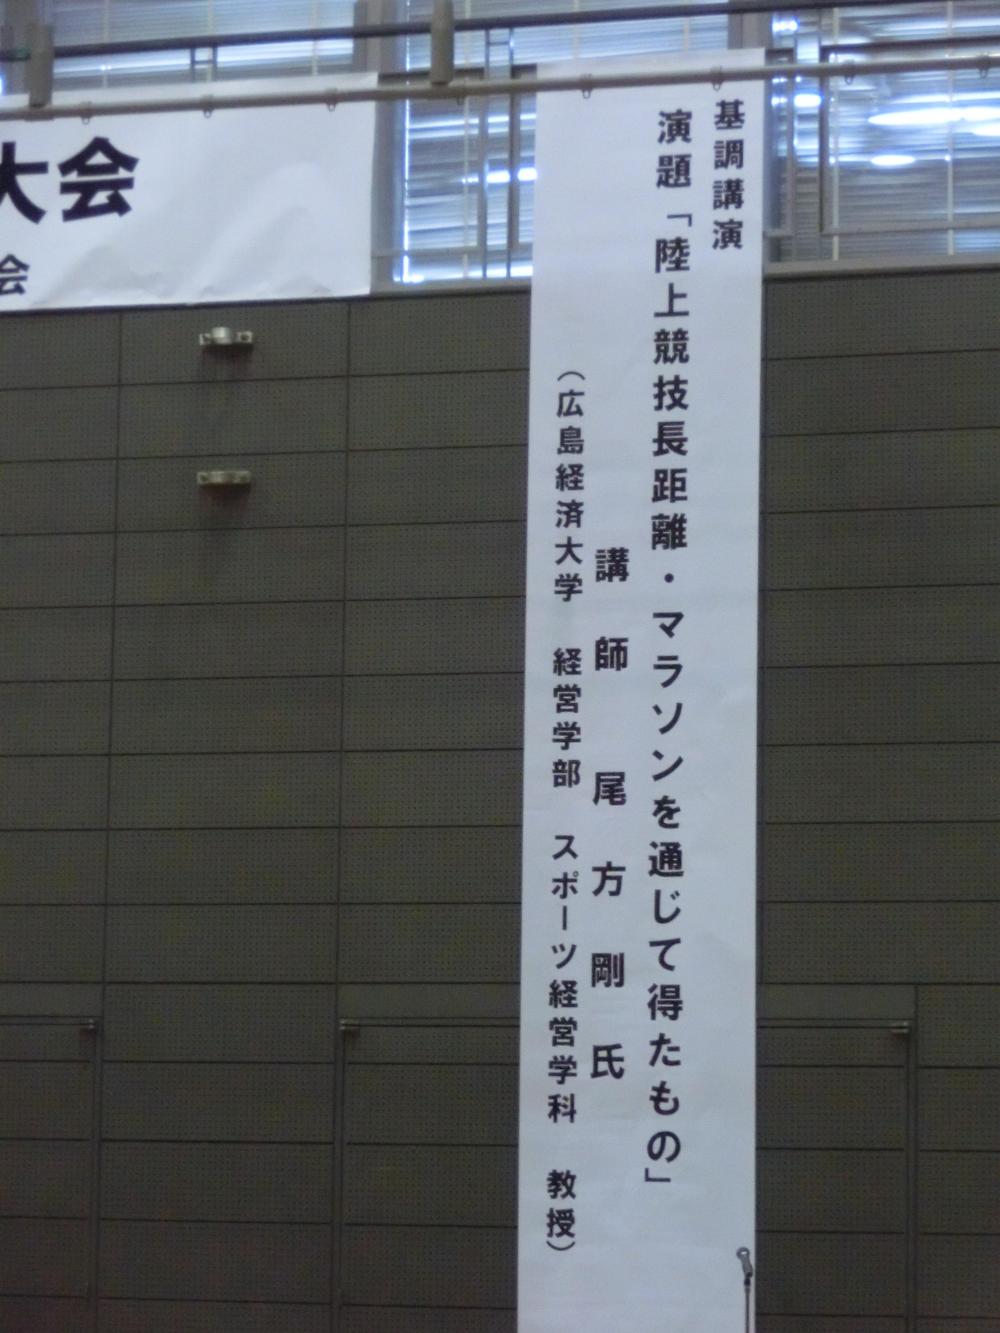 大会
会
基調講演
演題「陸上競技長距離・マラソンを通じて得たもの」
講師 尾方剛氏
（広島経済大学 経営学部 スポーツ経営学科 教授）